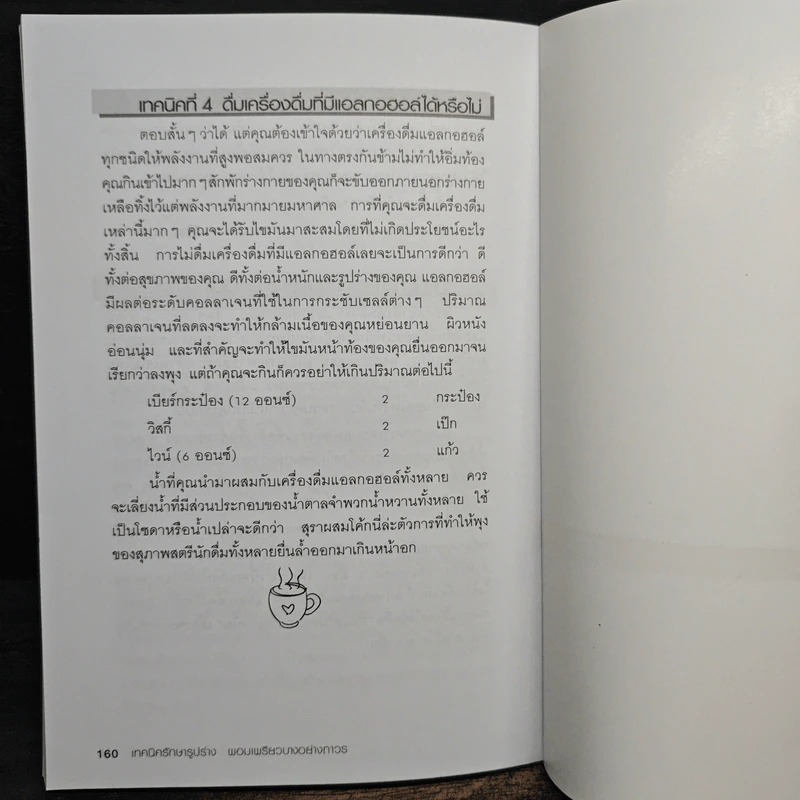 เทคนิคที่ 4 ดื่มเครื่องดื่มที่มีแอลกอฮอล์ได้หรือไม่
ตอบสั้นๆ ว่าได้ แต่คุณต้องเข้าใจด้วยว่าเครื่องดื่มแอลกอฮอล์
ทุกชนิดให้พลังงานที่สูงพอสมควร ในทางตรงกันข้ามไม่ทำให้อิ่มท้อง
คุณกินเข้าไปมากๆ สักพักร่างกายของคุณก็จะขับออกภายนอกร่างกาย
เหลือทิ้งไว้แต่พลังงานที่มากมายมหาศาล การที่คุณจะดื่มเครื่องดื่ม
เหล่านี้มากๆ คุณจะได้รับไขมันมาสะสมโดยที่ไม่เกิดประโยชน์อะไร
ทั้งสิ้น การไม่ดื่มเครื่องดื่มที่มีแอลกอฮอล์เลยจะเป็นการดีกว่า ดี
ทั้งต่อสุขภาพของคุณ ดีทั้งต่อน้ำหนักและรูปร่างของคุณ แอลกอฮอล์
มีผลต่อระดับคอลลาเจนที่ใช้ในการกระชับเซลล์ต่างๆ ปริมาณ
คอลลาเจนที่ลดลงจะทำให้กล้ามเนื้อของคุณหย่อนยาน ผิวหนัง
อ่อนนุ่ม และที่สำคัญจะทำให้ไขมันหน้าท้องของคุณยื่นออกมาจน
เรียกว่าลงพุง แต่ถ้าคุณจะกินก็ควรอย่าให้เกินปริมาณต่อไปนี้
เบียร์กระป๋อง (12 ออนซ์) 2 กระป๋อง
วิสกี้ 2 เป๊ก
ไวน์ (6 ออนซ์) 2 แก้ว
น้ำที่คุณนำมาผสมกับเครื่องดื่มแอลกอฮอล์ทั้งหลาย ควร
จะเลี่ยงน้ำที่มีส่วนประกอบของน้ำตาลจำพวกน้ำหวานทั้งหลาย ใช้
เป็นโซดาหรือน้ำเปล่าจะดีกว่า สุราผสมโค้กนี่ล่ะตัวการที่ทำให้พุง
ของสุภาพสตรีนักดื่มทั้งหลายยื่นล้ำออกมาเกินหน้าอก
160 เทคนิครักษารูปร่าง ผอมเพรียวบางอย่างถาวร